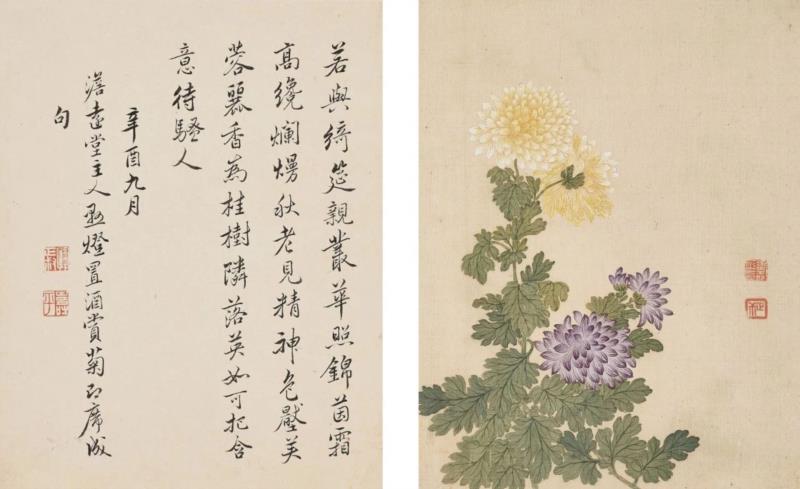 若與綺筵親叢華照錦茵霜
高纔爛熳秋老見精神色壓芙
蓉麗香為桂樹隣落英如可把含
意待騷人
辛酉九月
澹遠堂主人燈置酒賞菊即席成
句